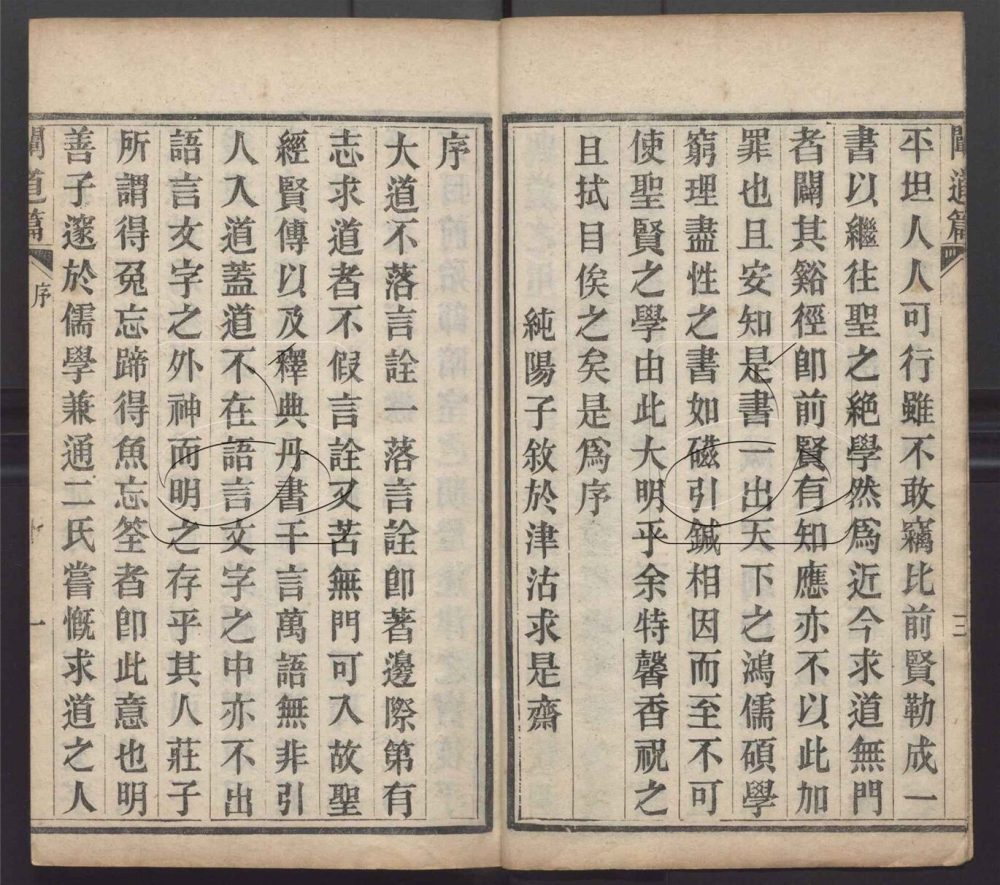 聞道篇
三
平坦人人可行雖不敢竊比前賢勒成一
書以繼往聖之絕學然爲近今求道無門
者闢其谿徑卽前賢有知應亦不以此加
罪也且安知是書一出天下之鴻儒碩學
窮理盡性之書如磁引鍼相因而至不可
使聖賢之學由此大明乎余特馨香祝之
且拭目俟之矣是爲序
純陽子敘於津沽求是齋
序
大道不落言詮一落言詮卽著邊際第有
志求道者不假言詮又苦無門可入故聖
經賢傳以及釋典丹書千言萬語無非引
人入道蓋道不在語言文字之中亦不出
語言文字之外神而明之存乎其人莊子
所謂得兔忘蹄得魚忘筌者卽此意也明
善子邃於儒學兼通二氏嘗慨求道之人
聞道篇
序
一